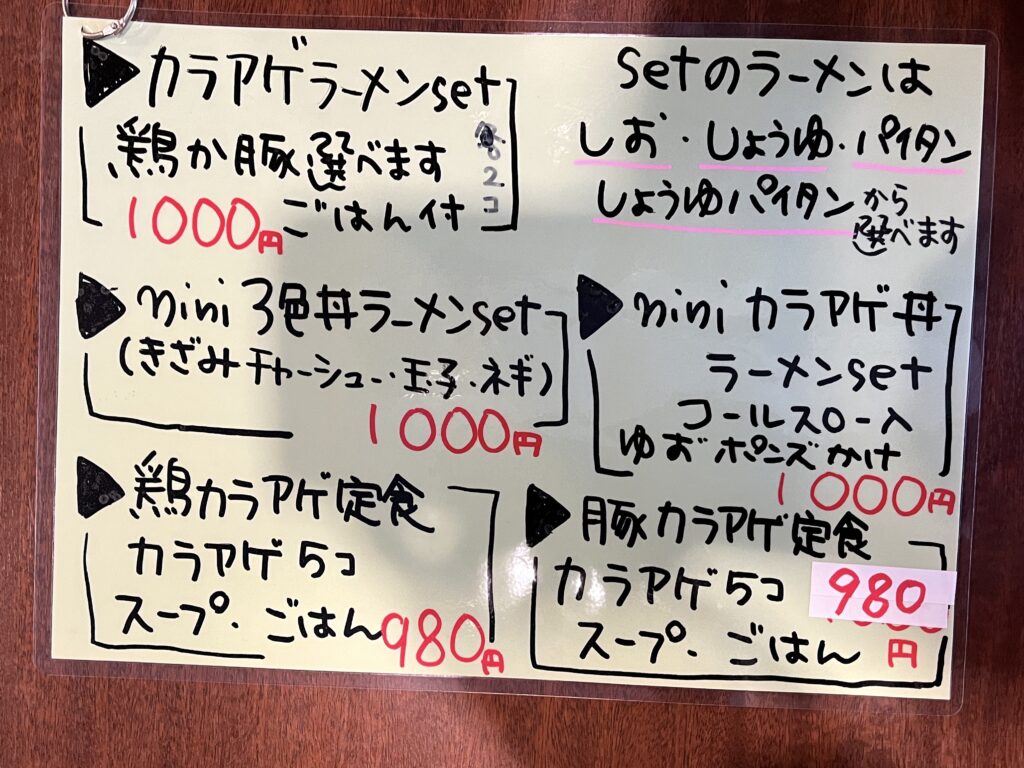 カラアゲラーメンset
鶏か豚選べます
各2コ
1000円 ごはん付
setのラーメンは
しお・しょうゆ・パイタン
しょうゆパイタンから
選べます
mini 3色丼ラーメンset
(きざみチャーシュー・玉子・ネギ)
1000円
mini カラアゲ丼
ラーメンset
コールスロー入
ゆずポンズかけ
1000円
鶏カラアゲ定食
カラアゲ5コ
スープ・ごはん 980円
豚カラアゲ定食
カラアゲ5コ 980
スープ・ごはん 円